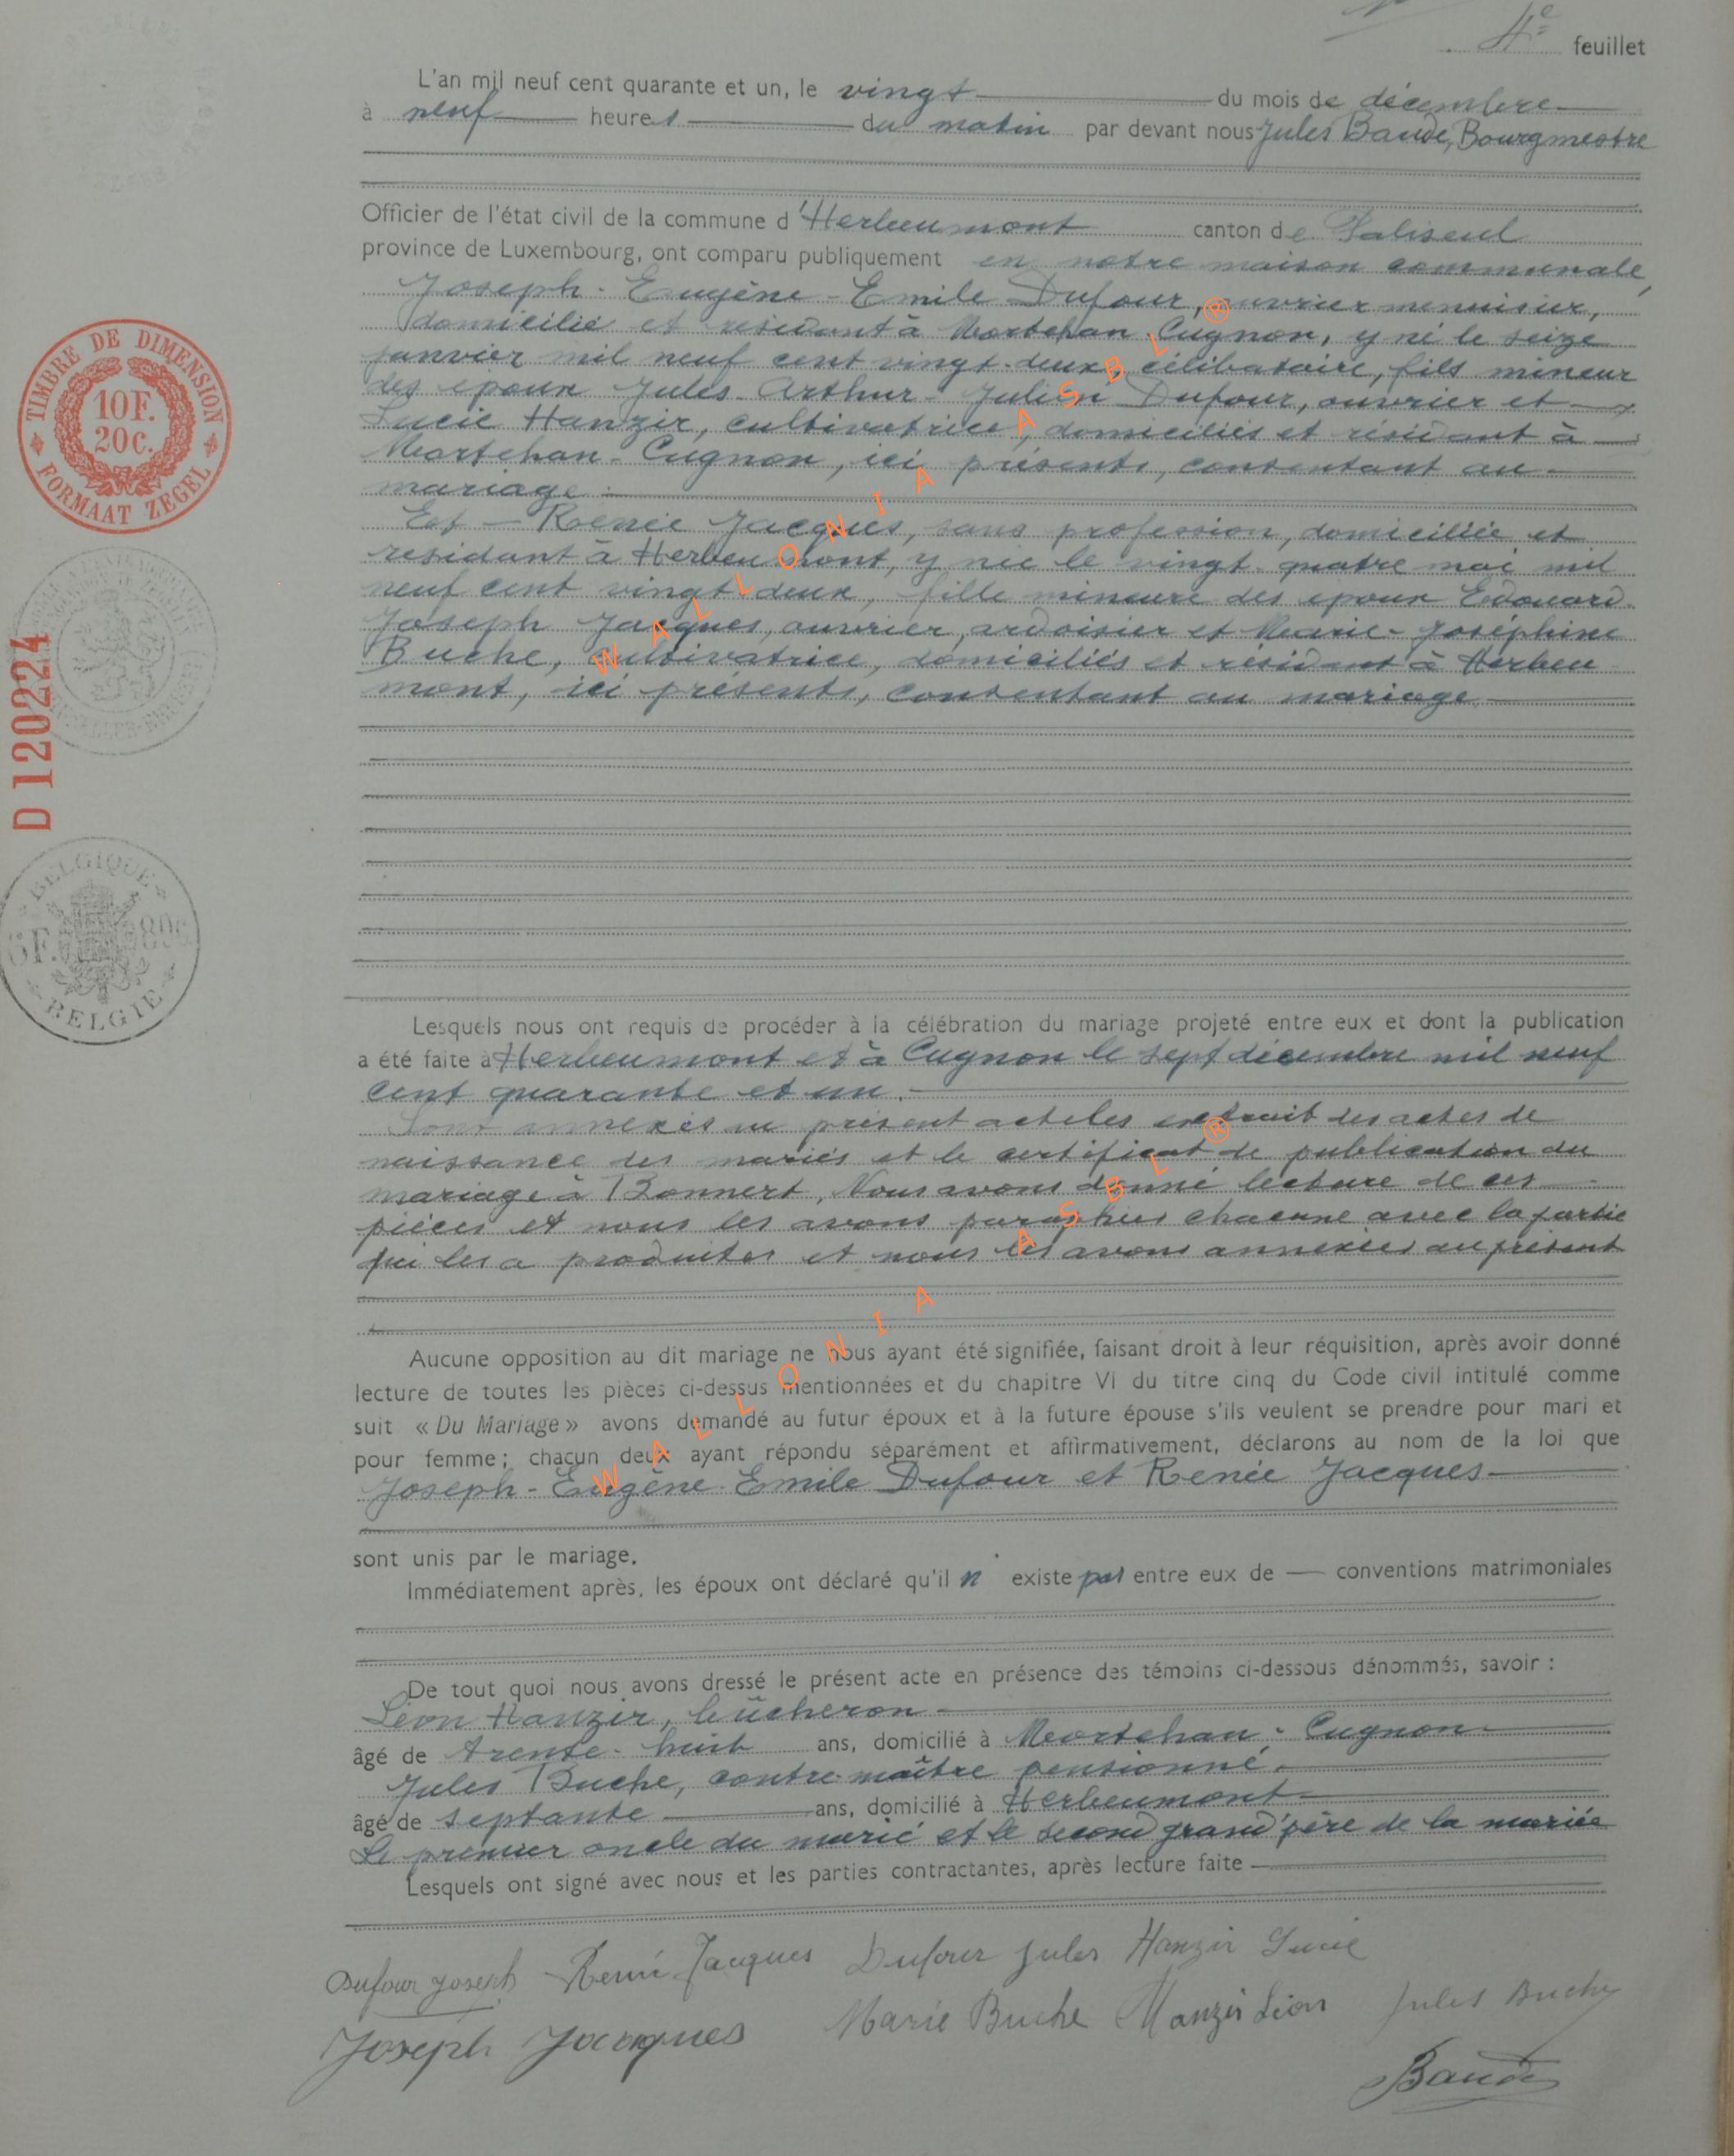 4e feuillet
L'an mil neuf cent quarante et un, le vingt du mois de décembre
à neuf heures du matin par devant nous Jules Baude, Bourgmestre
Officier de l'état civil de la commune d'Herbeumont canton de Paliseul
province de Luxembourg, ont comparu publiquement en notre maison communale,
Joseph-Eugène-Emile Dufour, ouvrier menuisier,
domicilié et résidant à Mortehan Cugnon, y né le seize
janvier mil neuf cent vingt-deux, célibataire, fils mineur
des époux Jules-Arthur-Julien Dufour, ouvrier et
Lucie Hanzir, cultivatrice, domiciliés et résidant à
Mortehan-Cugnon, ici présents, consentant au
mariage.
Et - Renée Jacques, sans profession, domiciliée et
résidant à Herbeumont, y née le vingt-quatre mai mil
neuf cent vingt deux, fille mineure des époux Edouard
Joseph Jacques, ouvrier, ardoisier et Marie-Joséphine
Buche, cultivatrice, domiciliés et résidant à Herbeu
mont, ici présents, consentant au mariage
Lesquels nous ont requis de procéder à la célébration du mariage projeté entre eux et dont la publication
a été faite à Herbeumont et à Cugnon le sept décembre mil neuf
cent quarante et un.
Sont annexés au présent acte les extrait des actes de
naissance des mariés et le certificat de publication du
mariage à Bonnert, Nous avons donné lecture de ces
pièces et nous les avons paraphées chacune avec la partie
qui les a produites et nous les avons annexées au présent
Aucune opposition au dit mariage ne nous ayant été signifiée, faisant droit à leur réquisition, après avoir donné
lecture de toutes les pièces ci-dessus mentionnées et du chapitre VI du titre cinq du Code civil intitulé comme
suit « Du Mariage » avons demandé au futur époux et à la future épouse s'ils veulent se prendre pour mari et
pour femme; chacun deux ayant répondu séparément et affirmativement, déclarons au nom de la loi que
Joseph-Eugène-Emile Dufour et Renée Jacques
sont unis par le mariage.
Immédiatement après, les époux ont déclaré qu'il n' existe pas entre eux de — conventions matrimoniales
De tout quoi nous avons dressé le présent acte en présence des témoins ci-dessous dénommés, savoir :
Léon Hanzir, bûcheron
âgé de trente-huit ans, domicilié à Mortehan-Cugnon
Jules Buche, contre-maître pensionné,
âgé de septante ans, domicilié à Herbeumont
Le premier oncle du marié et le second grand'père de la mariée
Lesquels ont signé avec nous et les parties contractantes, après lecture faite
Dufour Joseph Renée Jacques Dufour Jules Hanzir Lucie
Joseph Jacques Marie Buche Hanzir Léon Jules Buche
Baude
TIMBRE DE DIMENSION
10F.
20C.
FORMAAT ZEGEL
D 120224
BELGIQUE
6F. 80C
BELGIE
WALLONIA ASBL ®
WALLONIA ASBL ®